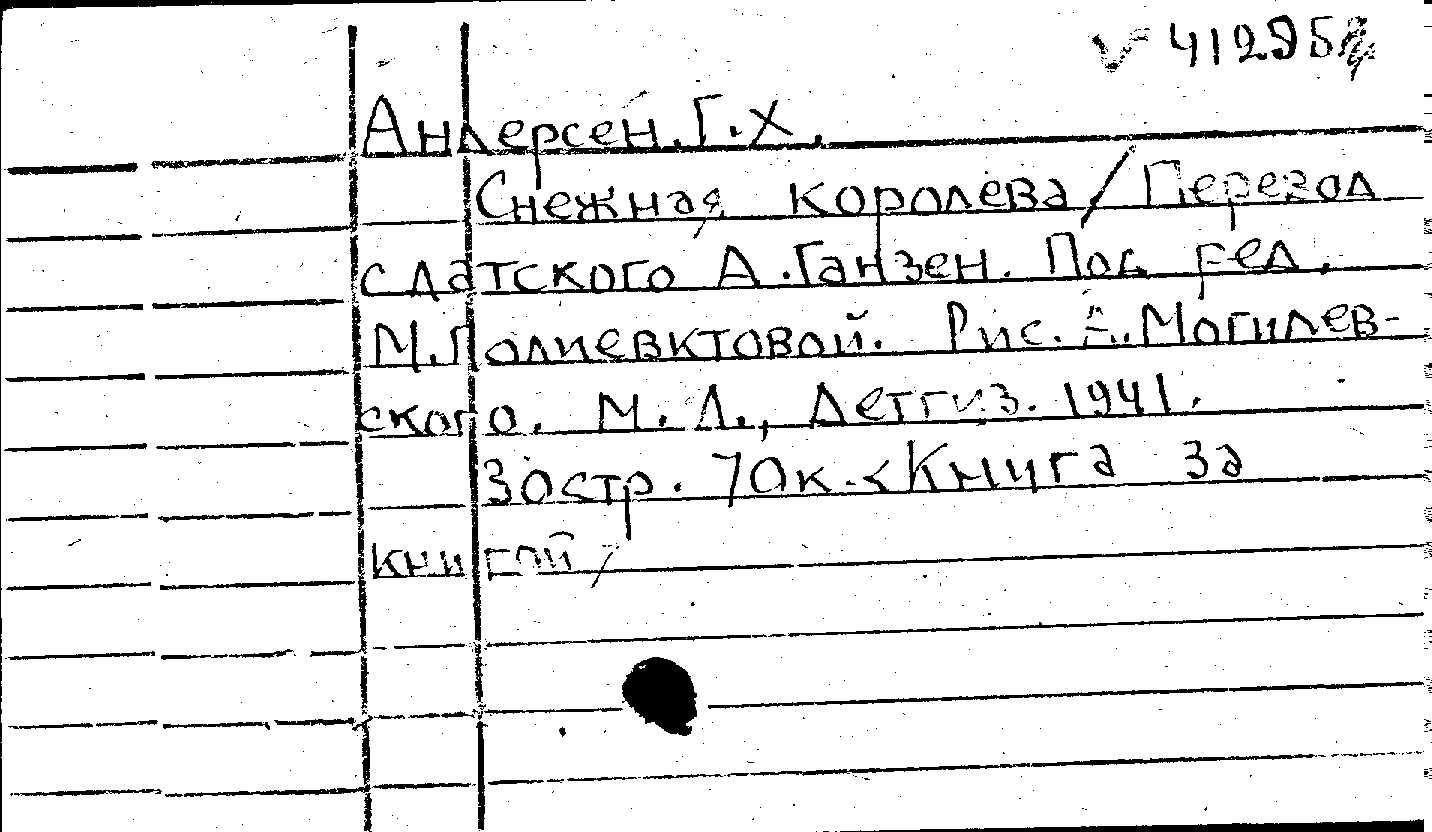 V 41295
Андерсен, Г.Х.
Снежная королева / Перевод
с датского А. Ганзен. Под ред.
М. Полиевктовой. Рис. А. Могилев-
ского. М. Л., Детгиз. 1941.
30 стр. 70к. <Книга за
книгой/